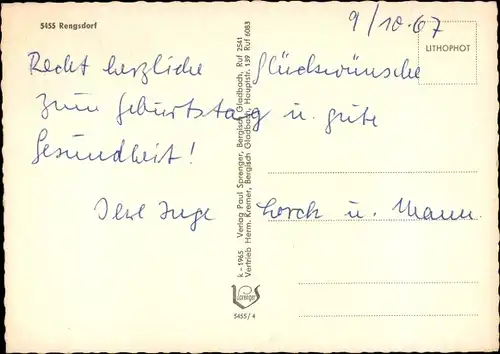 5455 Rengsdorf
9/10.67
LITHOPHOT
Recht herzliche Glückwünsche
zum Geburtstag u. gute
Gesundheit!
Inge Lorck u. Mann
k - 1965 Verlag Paul Sprenger, Bergisch Gladbach, Ruf 2541
Vertrieb Herm. Kremer, Bergisch Gladbach, Hauptstr. 139 Ruf 6083
Sprenger
5455/4